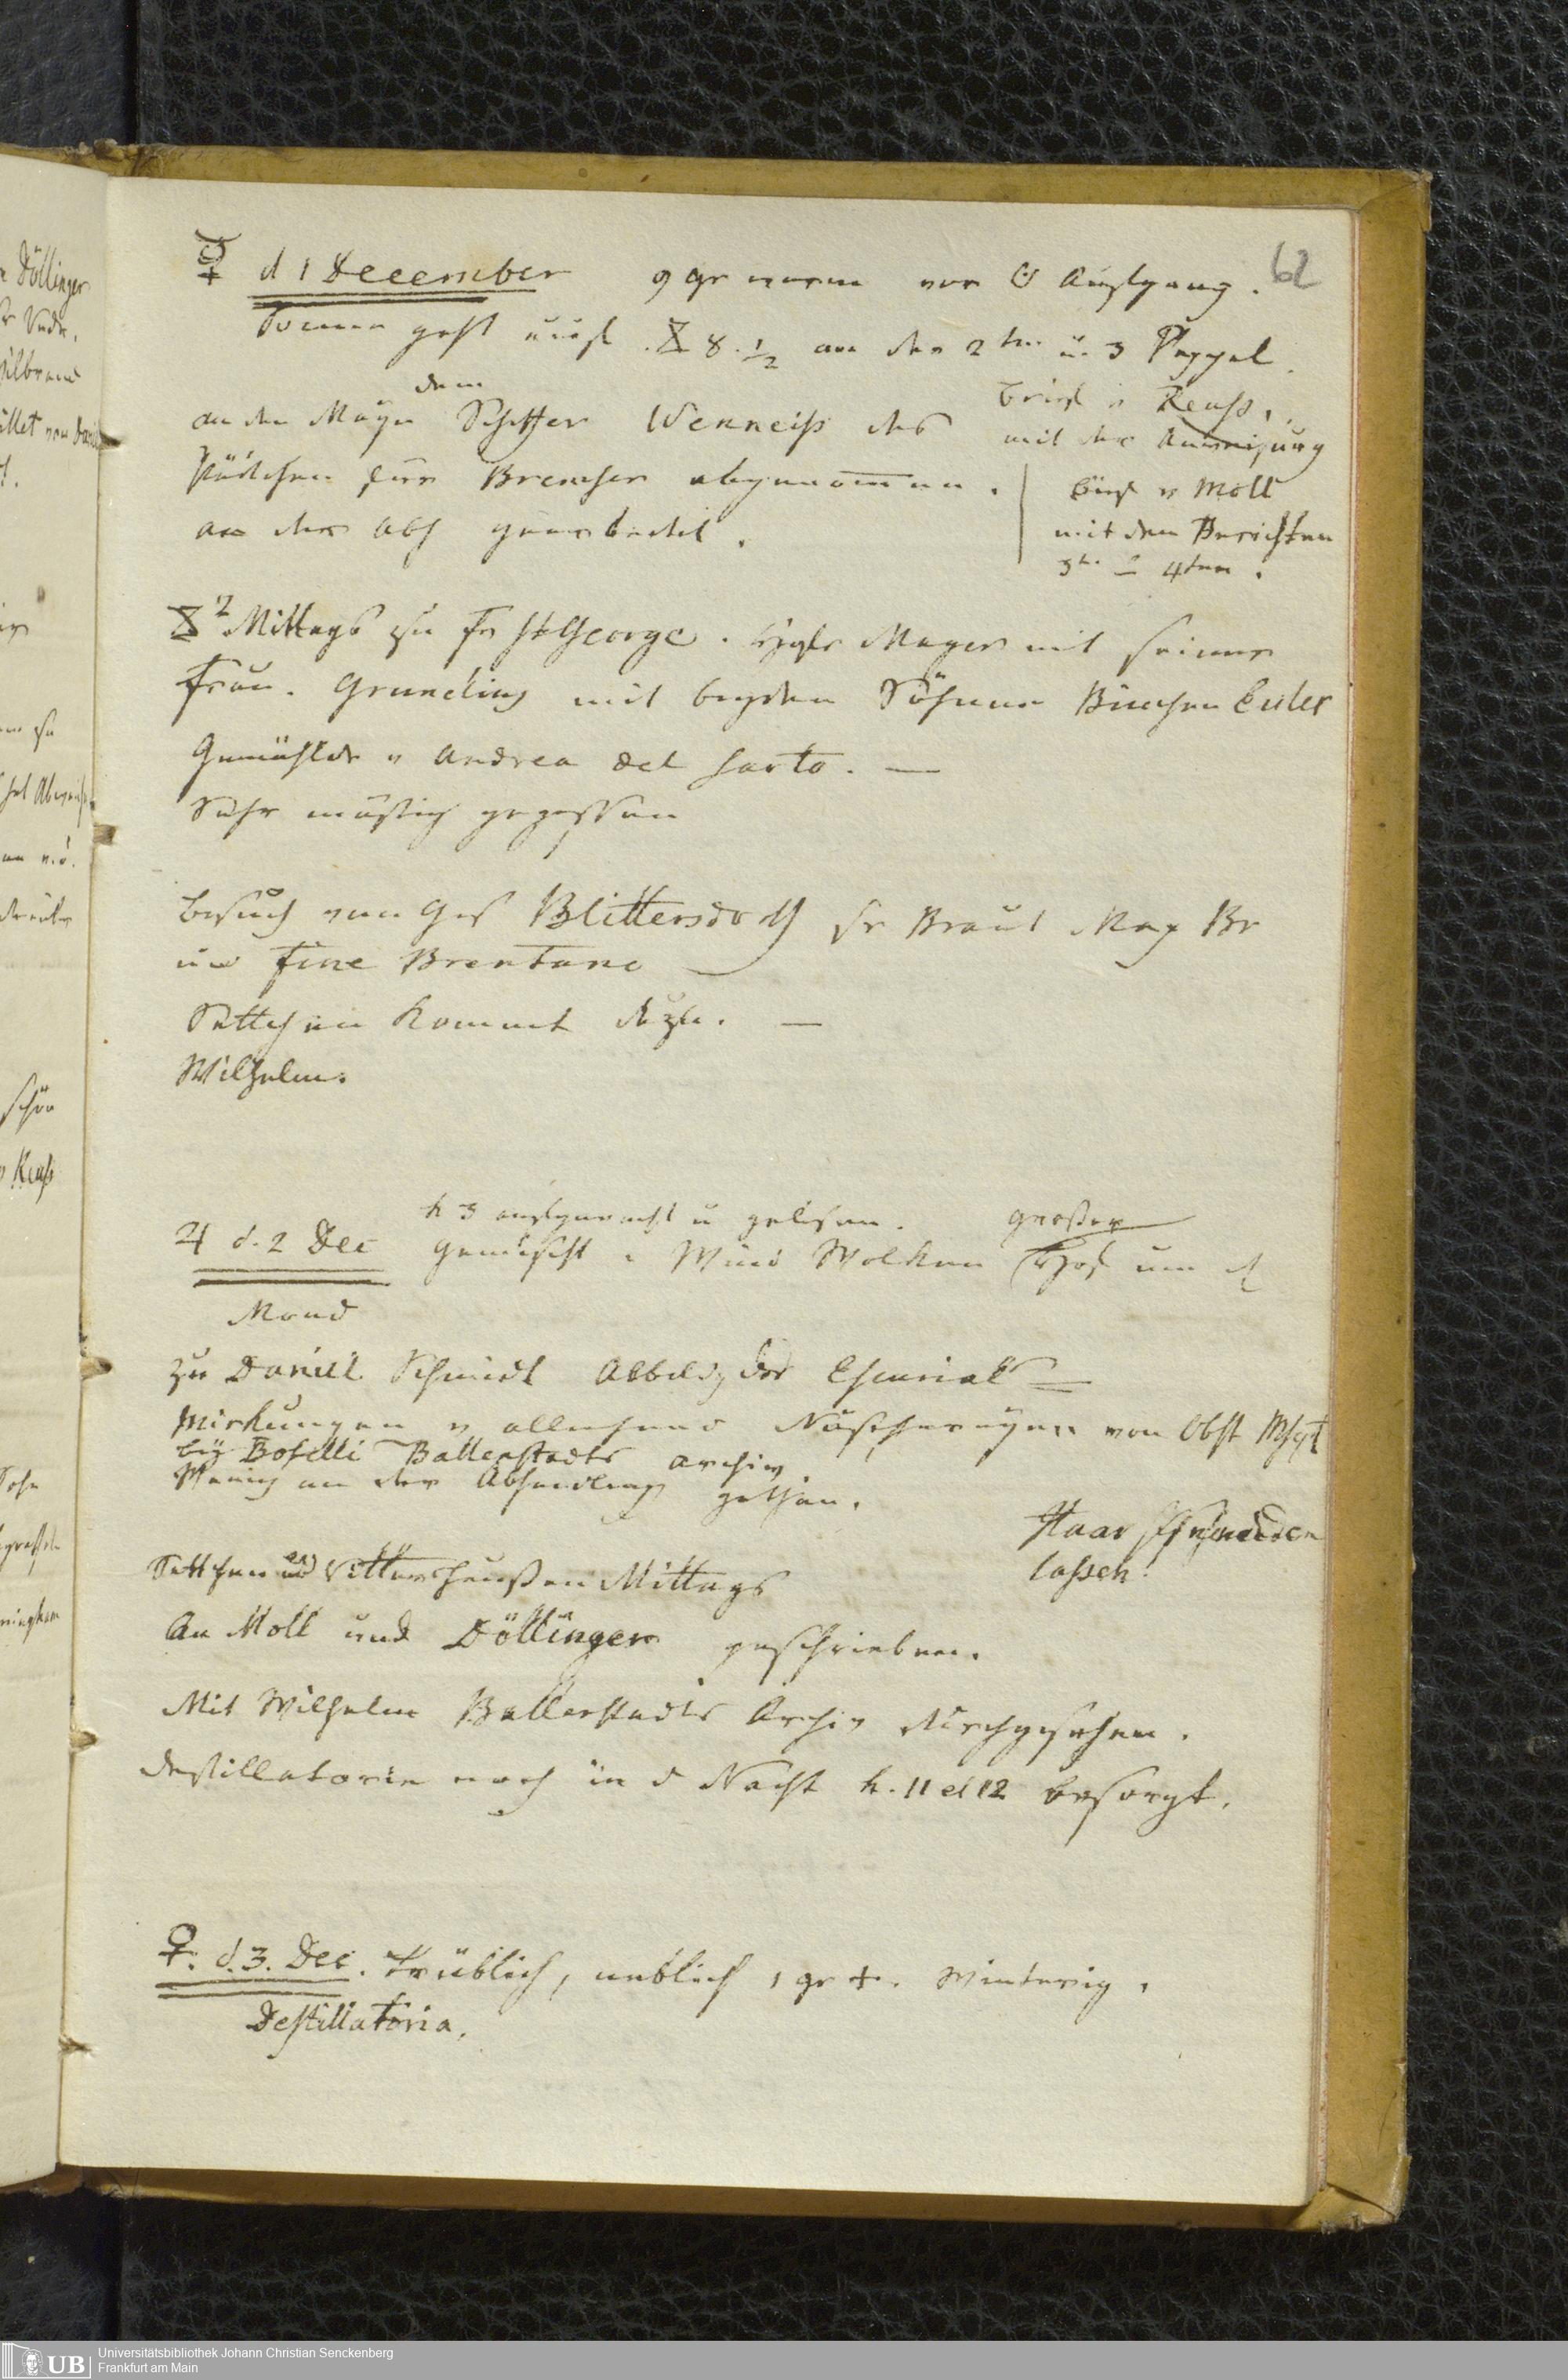 62
☿ d 1 December 9 gr warm vor ☉ Aufgang.
Sonne geht auf ⧖ 8. 1/2 an der 2ten u. 3 Pappel.
an den Mayn dem Schiffer Wenneis das
Kästchen für Bremser abgenommen.
an der Abh gearbeitet.
Brief v Reuss,
mit der Anweisung
Brief v Moll
mit den Berichten
3t. 4ten.
⧖ 2 Mittags zu Fr St George. Mayer mit seiner
Frau. Grunelius mit beyden Söhnen Euler
Gemählde v Andrea del Sarto. —
Sehr mässig gegessen
Besuch von Ges Blittersdorff sr Braut Max Br
und Fine Brentano
Settchen kommt dazu. —
Wilhelm.
♃ d. 2 Dec h 3 aufgewacht u gelesen.
gemischt Wind Wolken großer Hof um d
Mond
zu Daniel Schmidt Abbildg des Escurial
Wirkungen v Näschereyen von Obst
bey Boselli Ballenstedts Archiv
Wenig an der Abhandlung gethan.
Haar schneiden
lassen.
Settchen und Mittags
An Moll und Döllinger geschrieben.
Mit Wilhelm Ballenstedts Archiv durchgesehen.
Destillatorie noch in d Nacht h. 11 et 12 besorgt.
♀. d. 3. Dec. Trüblich, neblich 1 gr +. Winterig.
Destillatoria.
Döllinger
Reuß
UB
Universitätsbibliothek Johann Christian Senckenberg
Frankfurt am Main